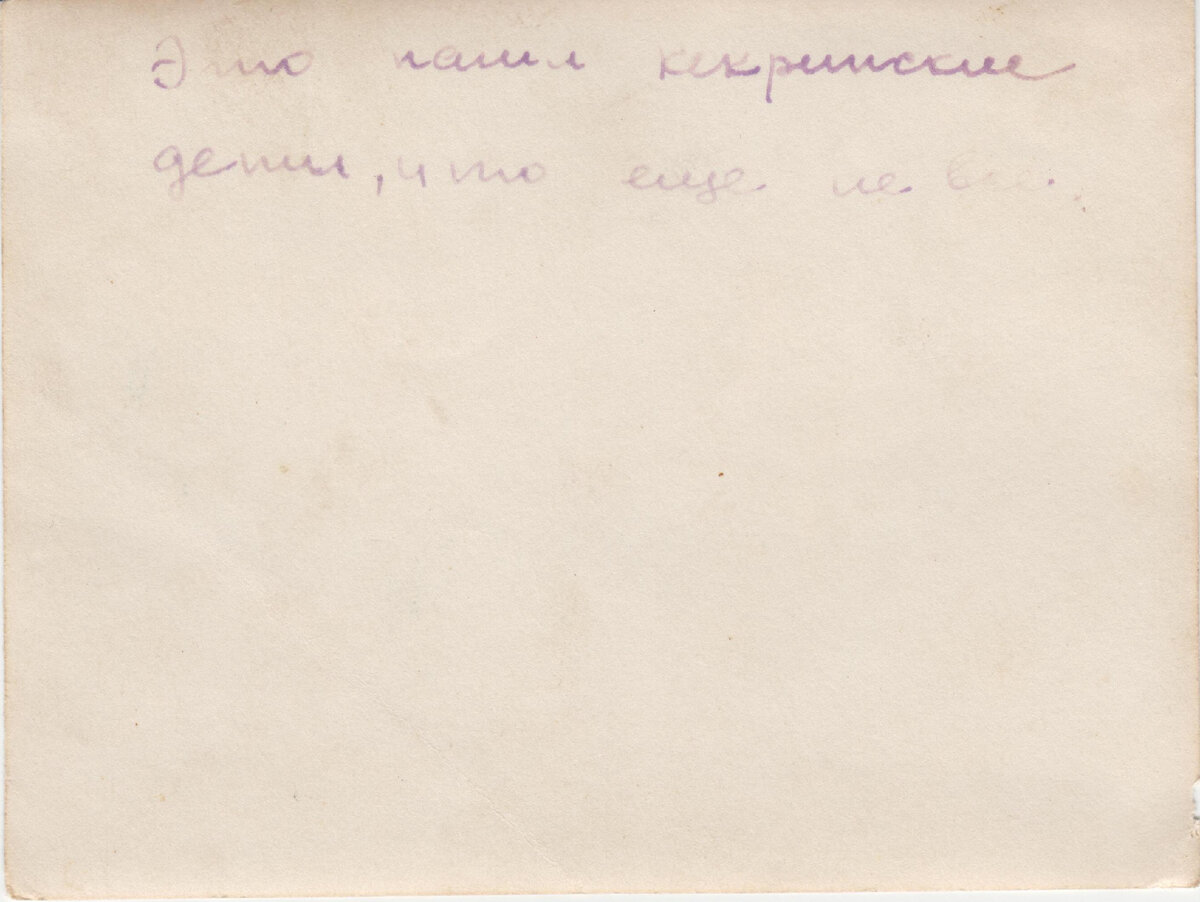 Это наши кекринские
дети, что еще не все.